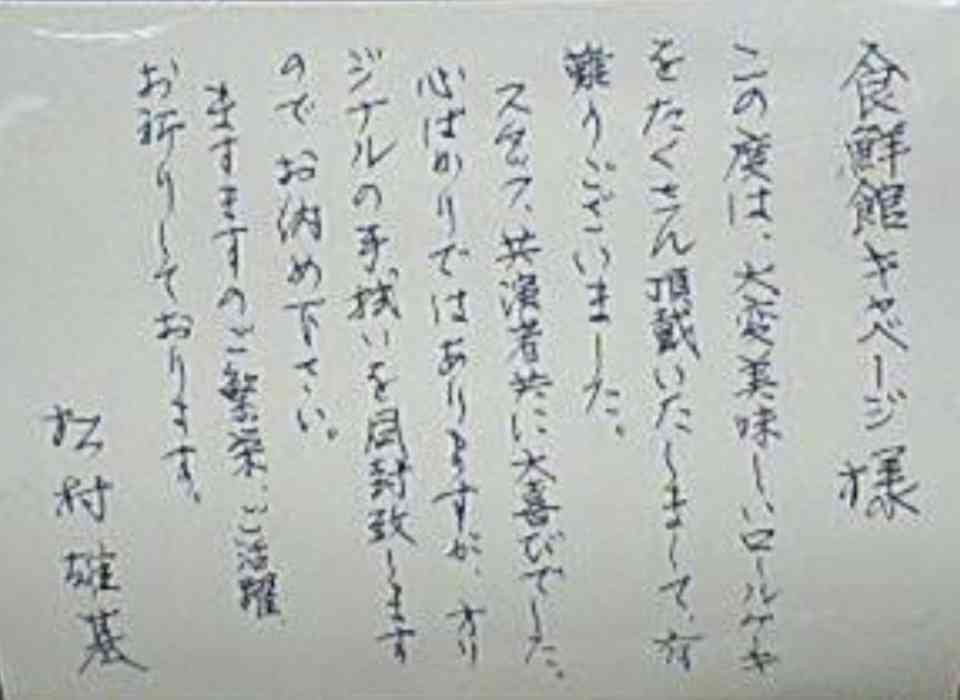 食鮮館キャベージ様
この度は、大変美味しいロールケーキ
をたくさん頂戴いたしまして、有
難うございました。
スタッフ、共演者共に大喜びでした。
心ばかりではありますが、オリ
ジナルの手拭いを同封致します
のでお納め下さい。
ますますのご繁栄、ご活躍
お祈りしております。
松村雄基